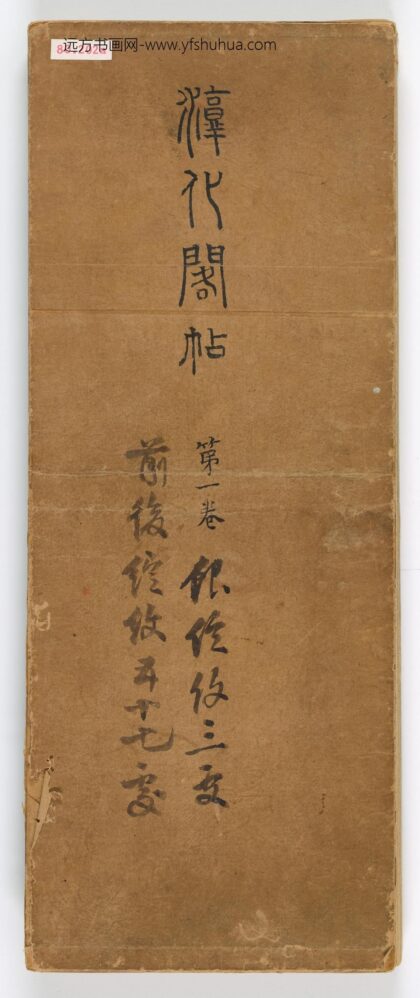 远方书画网-www.yfshuhua.com
淳化閣帖
第一卷 銀錠紋三處
前後錠紋五十七處